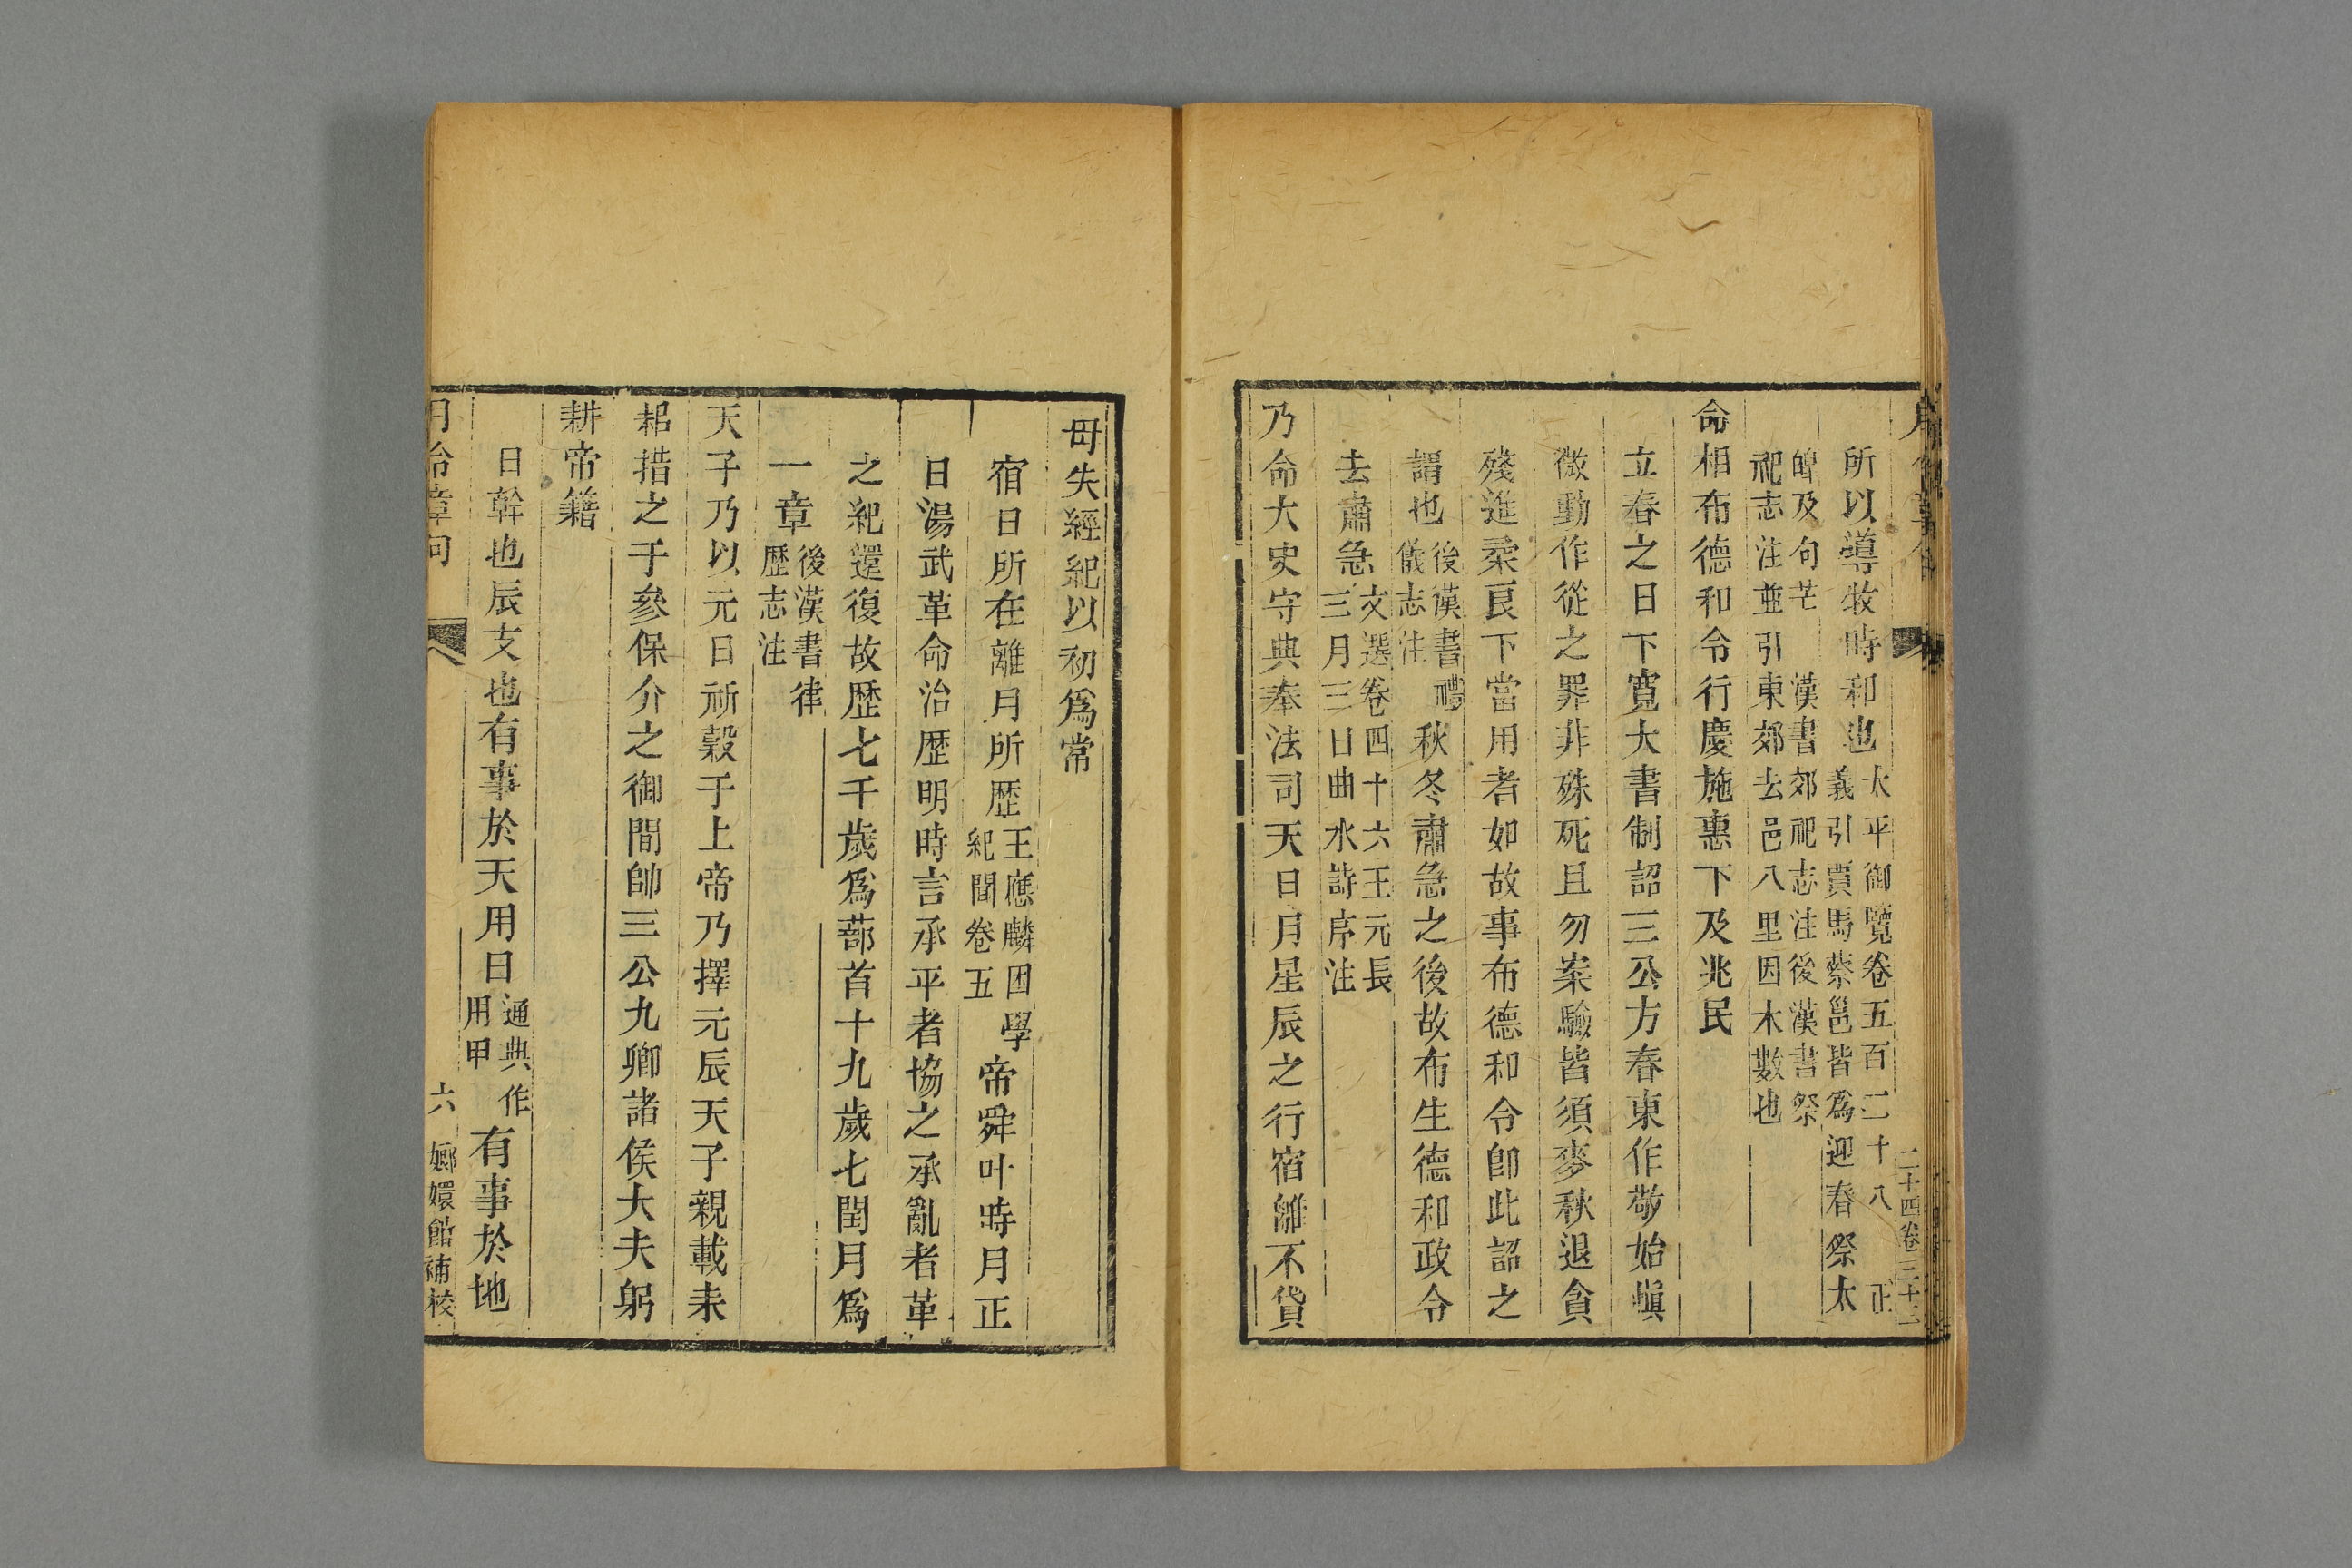 所以導牧時和也太平御覽卷五百二十八正義引賈馬蔡邕皆爲迎春祭太
皥及句芒漢書郊祀志注後漢書祭祀志注並引東郊去邑八里因木數也
命相布德和令行慶施惠下及兆民
立春之日下寬大書制詔三公方春東作敬始愼
微動作從之罪非殊死且勿案驗皆須麥秋退貪
殘進柔良下當用者如故事布德和令卽此詔之
謂也後漢書禮儀志注秋冬肅急之後故布生德和政令
去肅急文選卷四十六王元長三月三日曲水詩序注
乃命大史守典奉法司天日月星辰之行宿離不貸
毋失經紀以初爲常
宿日所在離月所歷王應麟困學紀聞卷五帝舜叶時月正
日湯武革命治歷明時言承平者協之承亂者革
之紀還復故歷七千歲爲蔀首十九歲七閏月爲
一章後漢書律歷志注
天子乃以元日祈穀于上帝乃擇元辰天子親載耒
耜措之于參保介之御間帥三公九卿諸侯大夫躬
耕帝籍
日幹也辰支也有事於天用日通典作用甲有事於地
月令章句 六 嫏嬛館補校